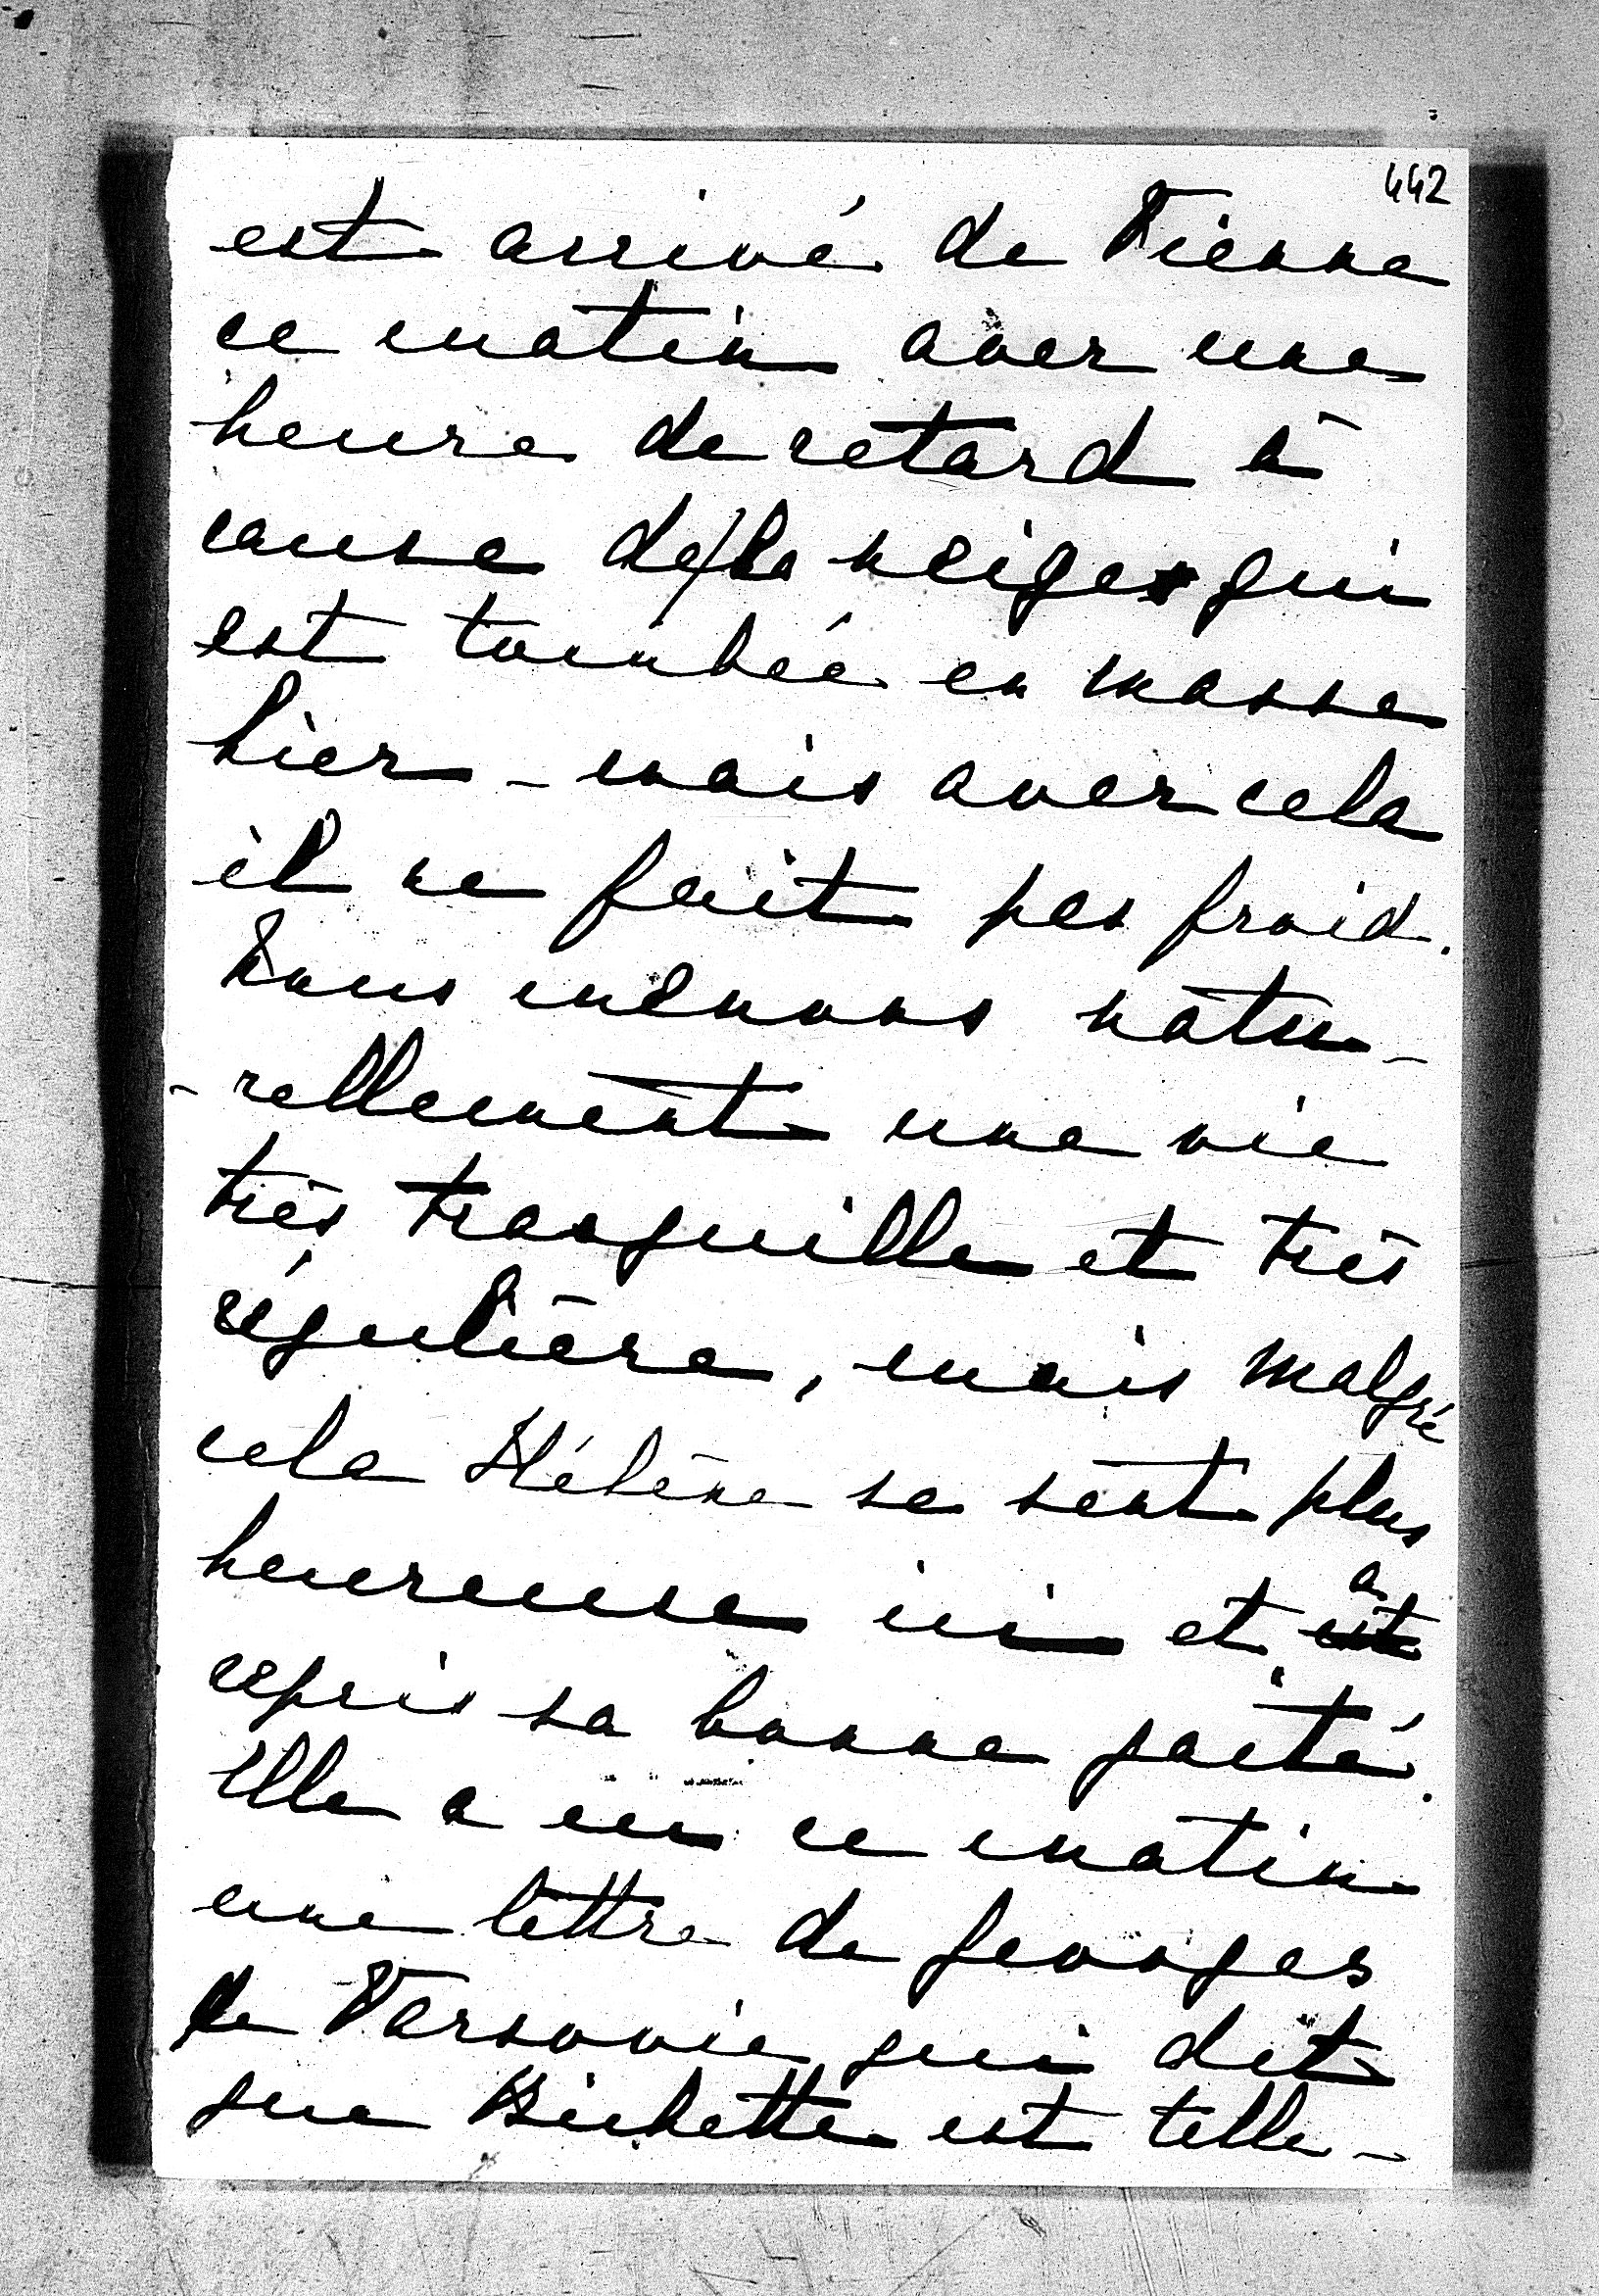 442
est arrivé de Vienne
ce matin avec une
heure de retard à
cause de la neige qui
est tombée en masse
hier - mais avec cela
il ne fait pas froid.
Nous menons natu-
-rellement une vie
très tranquille et très
régulière, mais malgré
cela Hélène se sent plus
a
heureuse ici et est
repris sa bonne gaité.
Elle a eu ce matin
une lettre de Georges
de Varsovie qui dit
que Bichette est telle-